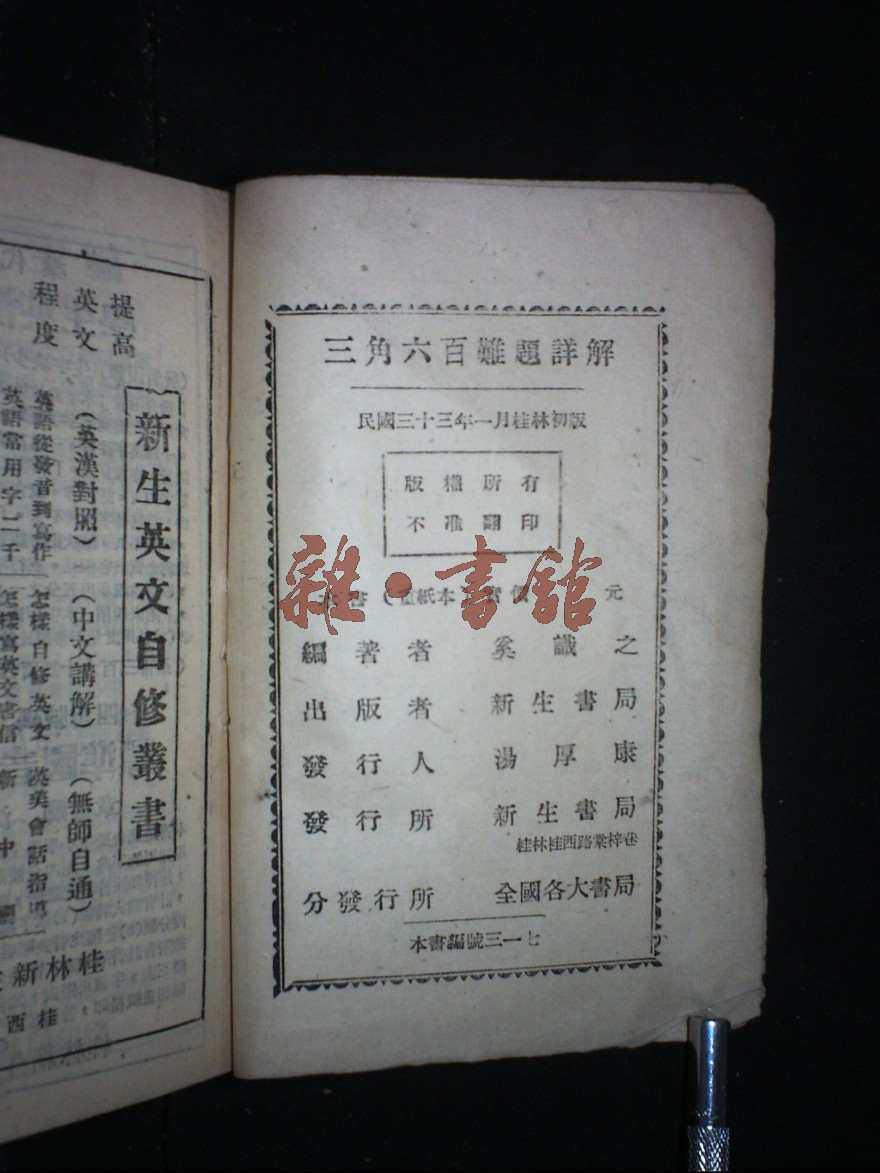 三角六百難題詳解
民國三十三年一月桂林初版
版權所有
不准翻印
雜·書館
元
編著者 奚識之
出版者 新生書局
發行人 湯厚康
發行所 新生書局
桂林桂西路業梓巷
分發行所 全國各大書局
本書編號三一七
提高
英文
程度
新生英文自修叢書
(英漢對照) (中文講解) (無師自通)
英語從發音到寫作 怎樣自修英文 英美會話指導
英語常用字二千 怎樣寫英文書信 新中
桂林新
桂西